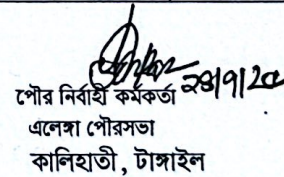 পৌর নির্বাহী কর্মকর্তা
এলেঙ্গা পৌরসভা
কালিহাতী, টাঙ্গাইল